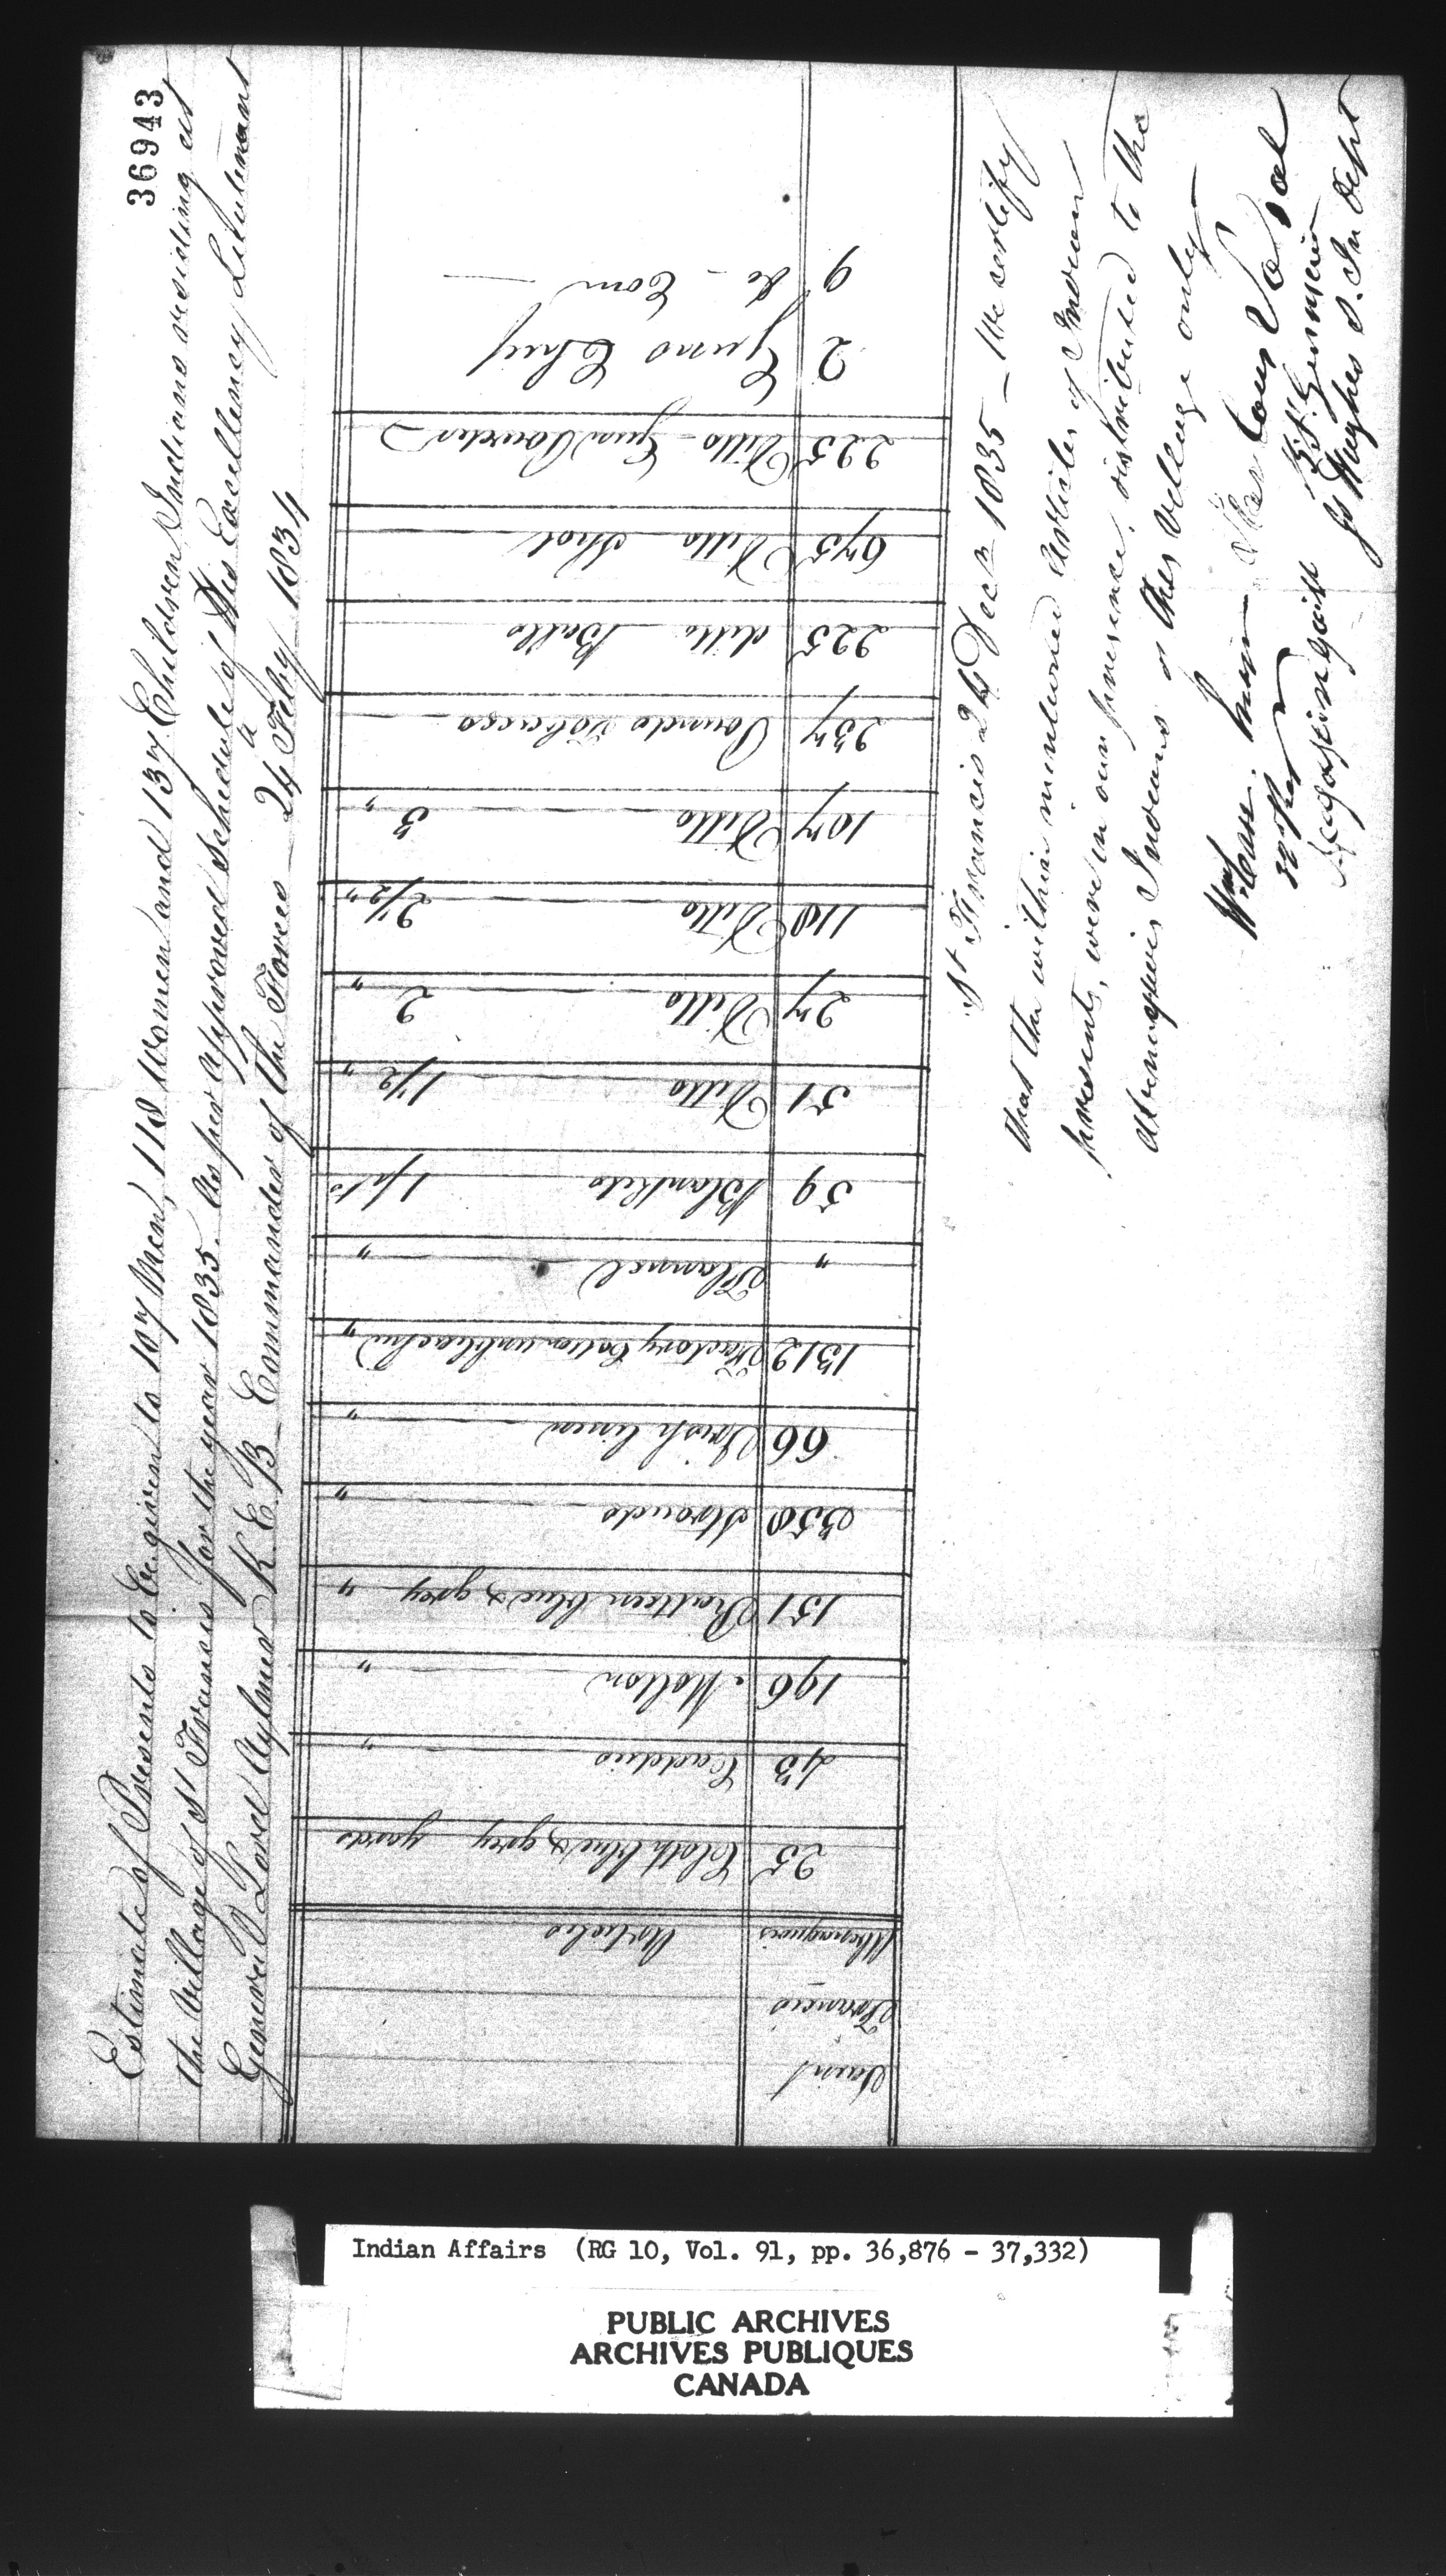 36943
Estimate of Presents to be given to 107 Men, 118 Women and 137 Children Indians residing at
the Village of St Francis for the year 1835. as per approved Schedule of His Excellency Lieutenant
General Lord Aylmer K.C.B. Commander of the Forces 24 Feby 1834
Saint
Francis
Abenaquois Articles
25 Cloth blue & grey yards
43 Caddies "
196 Molton "
151 Ratteen blue & grey "
350 Strouds "
66 Irish linen "
1312 Factory Cotton unbleached "
" Flannel "
59 Blankets 1 pts
51 Ditto 1 1/2 "
27 Ditto 2 "
118 Ditto 2 1/2 "
107 Ditto 3 "
237 Pounds Tobacco
225 ditto Balls
675 Ditto Shot
225 Ditto Gun Powder
2 Guns Chief
9 do - Com
St Francis 26 Decr 1835 - We certify
that the within mentioned articles of Indian
presents, were in our presence, distributed to the
Abenaquois Indians of this village only
Louis
Js Hughes S. In Dept
Indian Affairs (RG 10, Vol. 91, pp. 36,876 - 37,332)
PUBLIC ARCHIVES
ARCHIVES PUBLIQUES
CANADA